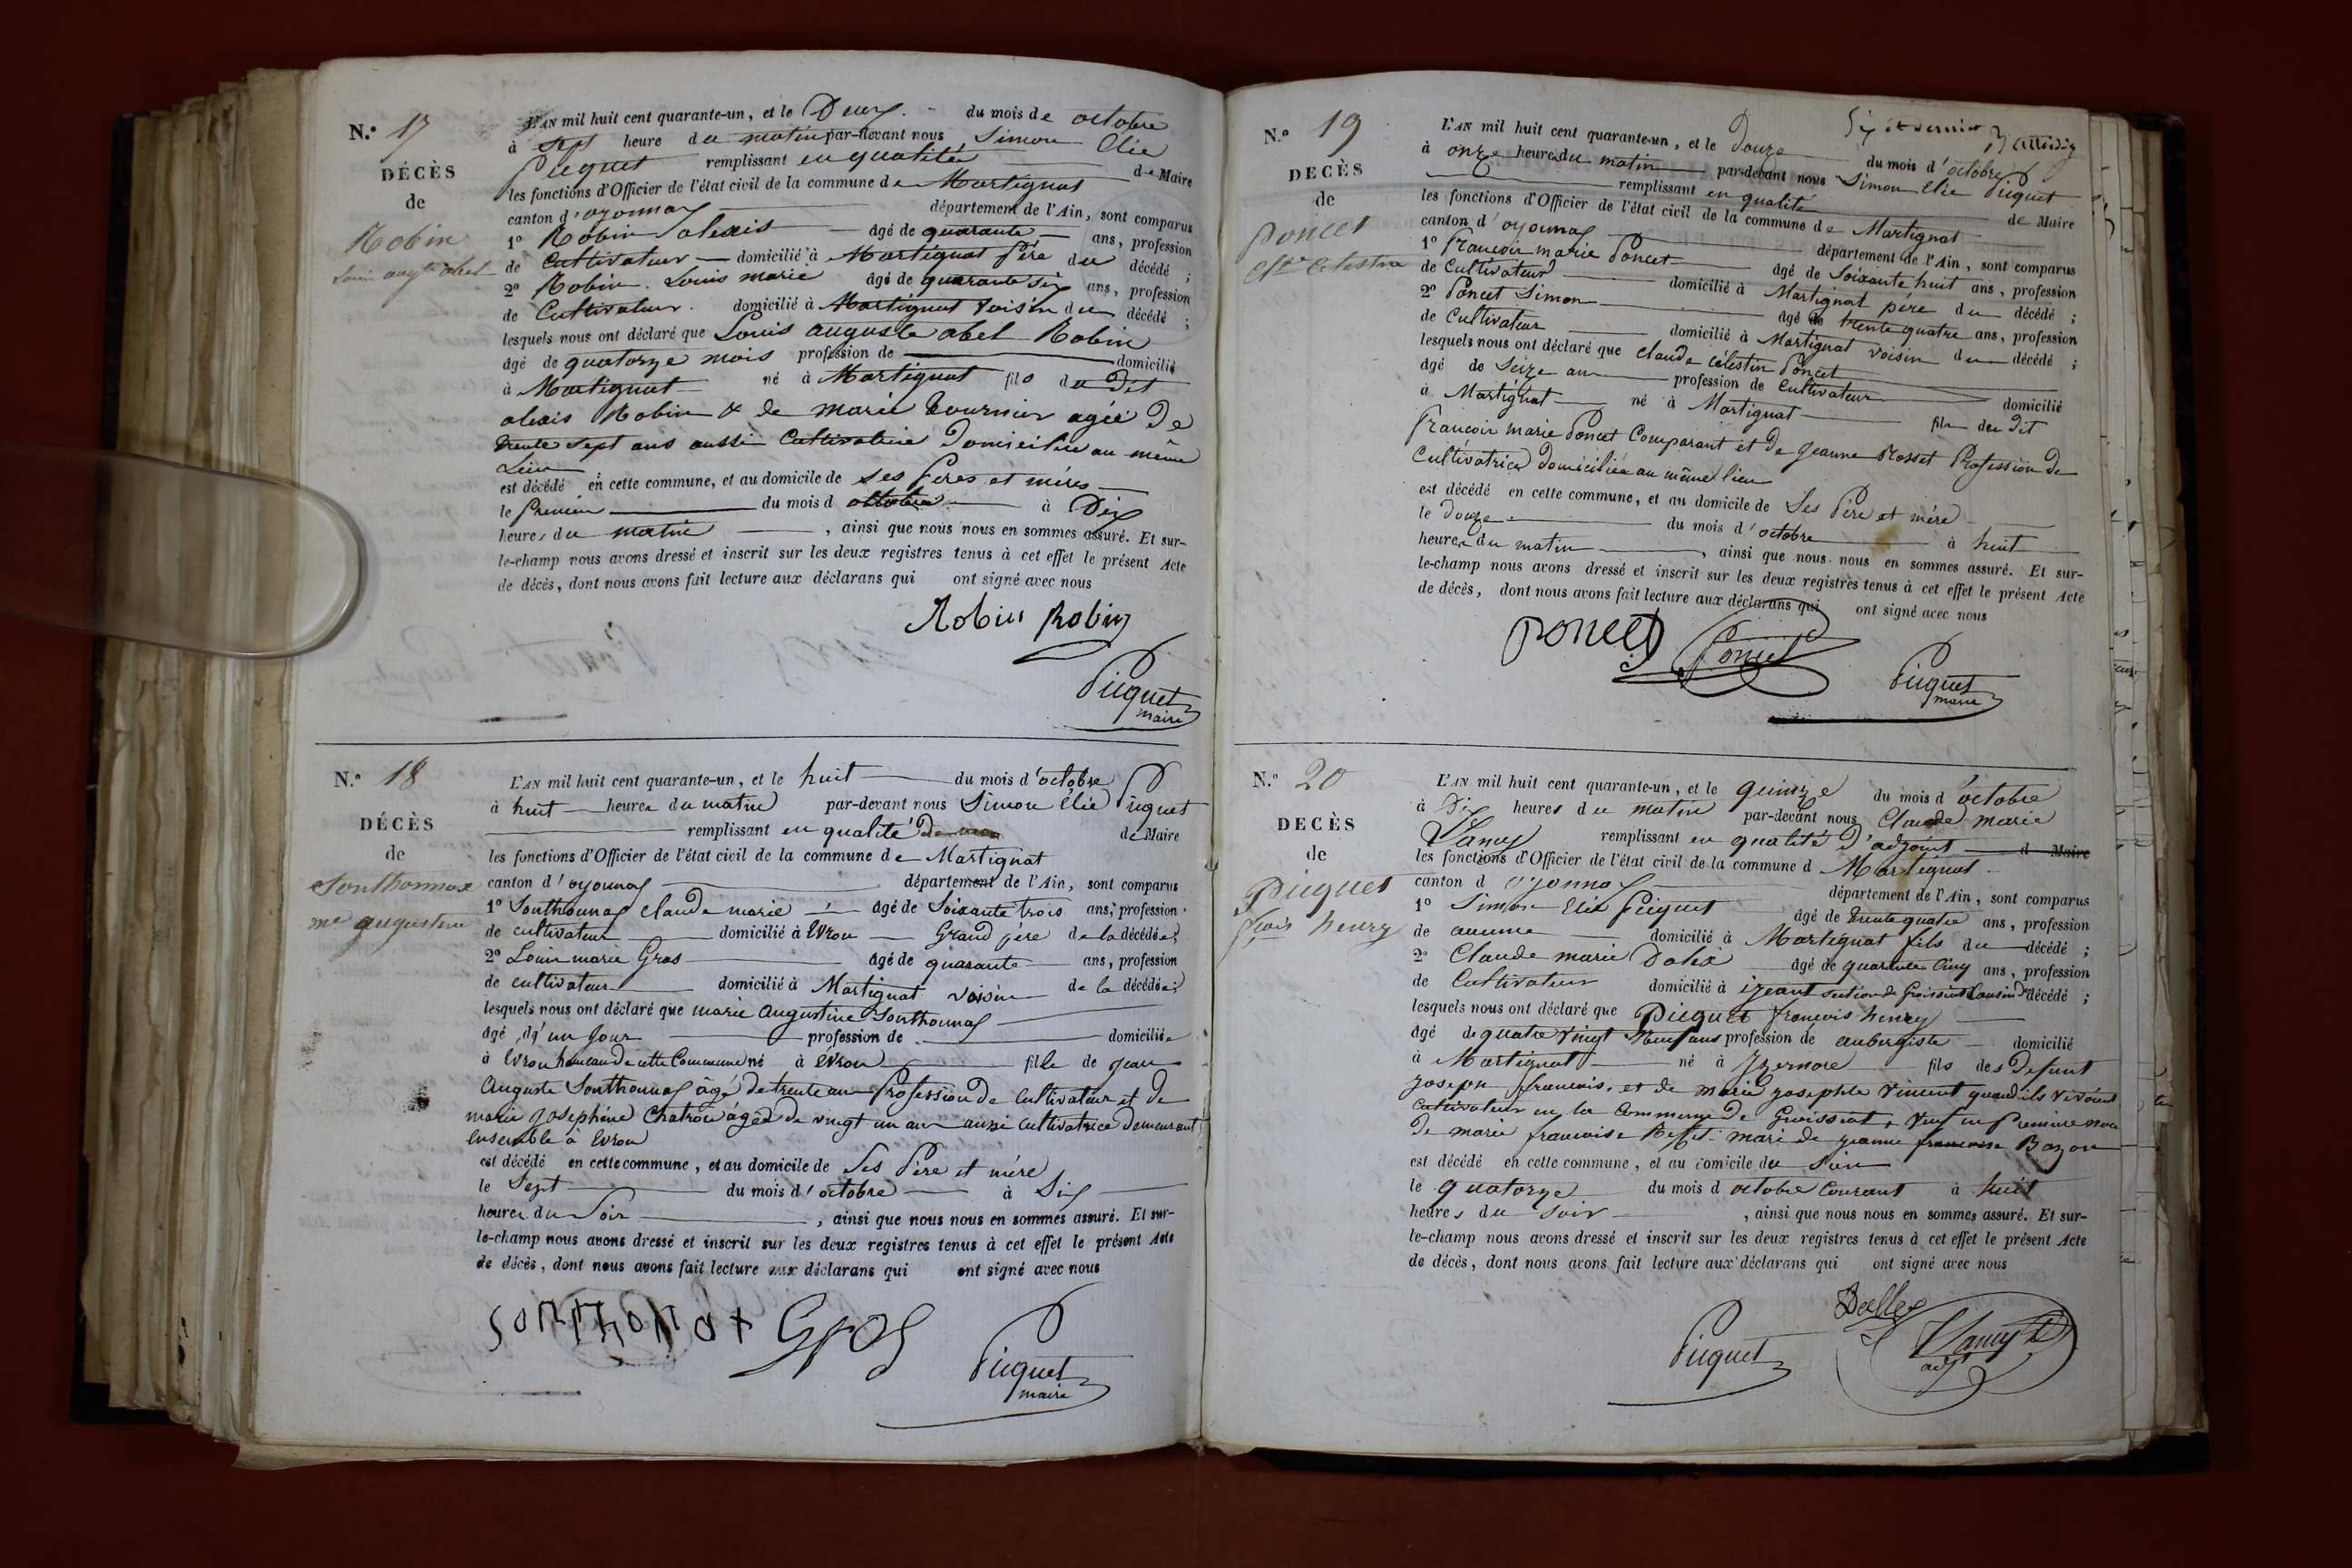 N.° 17
DÉCÈS
de
Robin
Louis aug.te abel
L'AN mil huit cent quarante-un, et le Deux du mois de octobre
à sept heure du matin par-devant nous Simon Elie
Piequet remplissant en qualité de Maire
les fonctions d'Officier de l'état civil de la commune de Martignat
canton d'oyonnax département de l'Ain, sont comparus
1° Robin alexis âgé de quarante ans, profession
de Cultivateur domicilié à Martignat Père du décédé ;
2° Robin Louis marie âgé de quarante six ans, profession
de Cultivateur domicilié à Martignat Voisin du décédé ;
lesquels nous ont déclaré que Louis auguste abel Robin
âgé de quatorze mois profession de domicilié
à Martignat né à Martignat fils du Dit
alexis Robin & de marie tournier agée de
trente sept ans aussi Cultivatrice Domiciliée au même
Lieu
est décédé en cette commune, et au domicile de ses Peres et méres
le Premier du mois d octobre à Dix
heures du matin, ainsi que nous nous en sommes assuré. Et sur-
le-champ nous avons dressé et inscrit sur les deux registres tenus à cet effet le présent Acte
de décès, dont nous avons fait lecture aux déclarans qui ont signé avec nous
Robin Robin
Piequet
maire
N.° 18
DÉCÈS
de
Sonthonnax
m.e augustine
L'AN mil huit cent quarante-un, et le huit du mois d'octobre
à huit heures du matin par-devant nous Simon Elie Piequet
remplissant en qualité de Maire
les fonctions d'Officier de l'état civil de la commune de Martignat
canton d'oyonnax département de l'Ain, sont comparus
1° Sonthonnax claude marie âgé de Soixante trois ans, profession
de cultivateur domicilié à Evron Grand père de la décédée ;
2° Louis marie Gros âgé de quarante ans, profession
de cultivateur domicilié à Martignat voisin de la décédée ;
lesquels nous ont déclaré que marie Augustine Sonthonnax
âgé d'un Jour profession de domiciliée
à Evron hameau de cette Commune né à Evron fille de Jean
Auguste Sonthonnax âgé de trente ans Profession de Cultivateur et de
marie Josephine Chatron âgée de vingt un ans aussi cultivatrice demeurant
ensemble à Evron
est décédé en cette commune, et au domicile de Ses Père et mère
le Sept du mois d'octobre à Six
heures du Soir, ainsi que nous nous en sommes assuré. Et sur-
le-champ nous avons dressé et inscrit sur les deux registres tenus à cet effet le présent Acte
de décès, dont nous avons fait lecture aux déclarans qui ont signé avec nous
sonthonax Gros
Piequet
maire
Six et dernier
N.° 19
DÉCÈS
de
Poncet
Célestin
L'AN mil huit cent quarante-un, et le Douze du mois d'octobre
à onze heures du matin par-devant nous Simon Elie Piequet
remplissant en qualité de Maire
les fonctions d'Officier de l'état civil de la commune de Martignat
canton d'oyonnax département de l'Ain, sont comparus
1° François marie Poncet âgé de Soixante huit ans, profession
de Cultivateur domicilié à Martignat père du décédé ;
2° Poncet Simon âgé de trente quatre ans, profession
de Cultivateur domicilié à Martignat voisin du décédé ;
lesquels nous ont déclaré que Claude Célestin Poncet
âgé de Seize ans profession de Cultivateur domicilié
à Martignat né à Martignat fils du Dit
François marie Poncet Comparant et de Jeanne Rosset Profession de
Cultivatrice domiciliée au même lieu
est décédé en cette commune, et au domicile de Ses Père et mère
le Douze du mois d'octobre à huit
heures du matin, ainsi que nous nous en sommes assuré. Et sur-
le-champ nous avons dressé et inscrit sur les deux registres tenus à cet effet le présent Acte
de décès, dont nous avons fait lecture aux déclarans qui ont signé avec nous
Poncet Poncet
Piequet
maire
N.° 20
DÉCÈS
de
Piequet
fçois henry
L'AN mil huit cent quarante-un, et le quinze du mois d'octobre
à Dix heures du matin par-devant nous Claude marie
remplissant en qualité d'adjoint d Maire
les fonctions d'Officier de l'état civil de la commune d Martignat
canton d oyonnax département de l'Ain, sont comparus
1° Simon Elie Piequet âgé de trente quatre ans, profession
de aucune domicilié à Martignat fils du décédé ;
2° Claude marie âgé de quarante Cinq ans, profession
de Cultivateur domicilié à izeant section de Groissiat Cousin du décédé ;
lesquels nous ont déclaré que Piequet françois henry
âgé de quatre vingt Neuf ans profession de aubergiste domicilié
à Martignat né à Izernore fils des Defunt
joseph françois, et de marie josephte Vincent quand ils vivoient
Cultivateur en la Commune de Groissiat, Veuf en Premiere noce
De marie françoise mari de jeanne françoise Bazon
est décédé en cette commune, et au domicile du Sien
le quatorze du mois d octobre Courant à huit
heures du soir, ainsi que nous nous en sommes assuré. Et sur-
le-champ nous avons dressé et inscrit sur les deux registres tenus à cet effet le présent Acte
de décès, dont nous avons fait lecture aux déclarans qui ont signé avec nous
Piequet
adjt